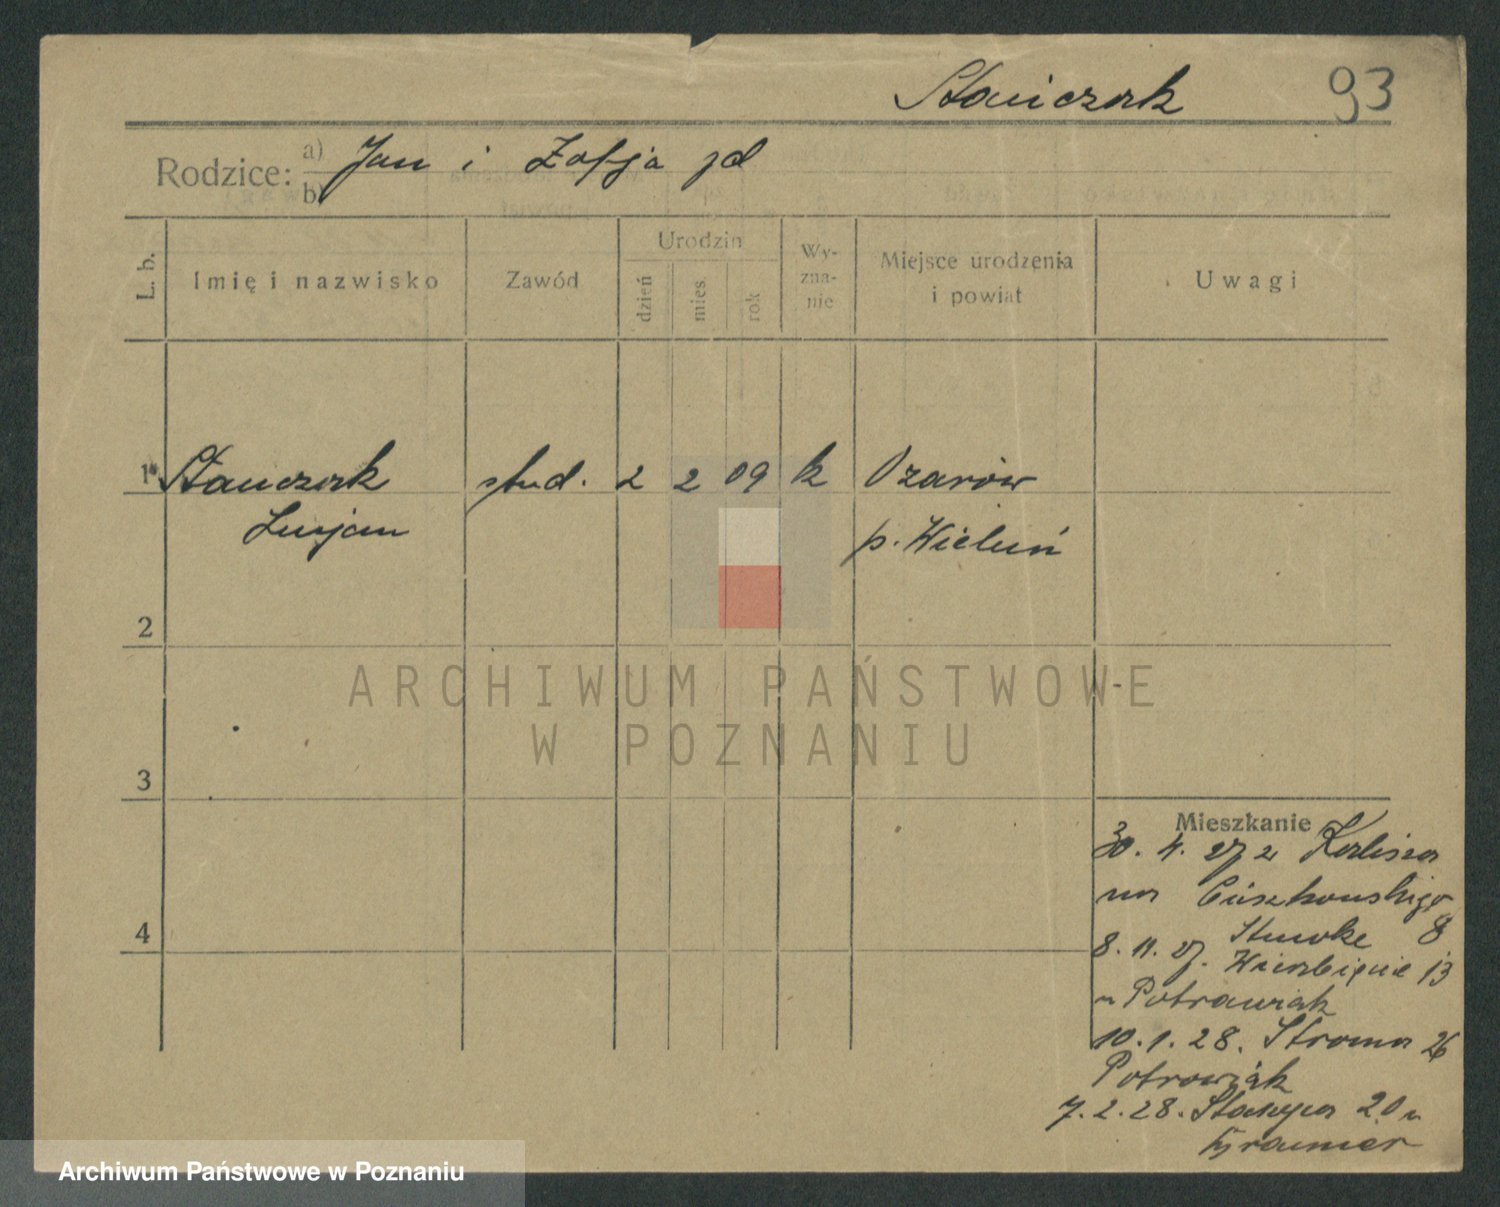 Stańczak 93
Rodzice: a) Jan i Zofja jd
b)
L. b. Imię i nazwisko Zawód Urodzin dzień mies rok Wy-zna-nie Miejsce urodzenia i powiat Uwagi
1 Stańczak stud. 2 2 09 k Ożarów
Lucjan p. Wieluń
2
3
4
Mieszkanie
30. 4. 27 z Kalisza
na Cieszkowskiego 8
8. 11. 27. Wierzbięcie 13
u Potrawiak
10. 1. 28. Stroma 26
Potrawiak
7. 2. 28. 20 u
Kramer
ARCHIWUM PAŃSTWOWE
W POZNANIU
Archiwum Państwowe w Poznaniu